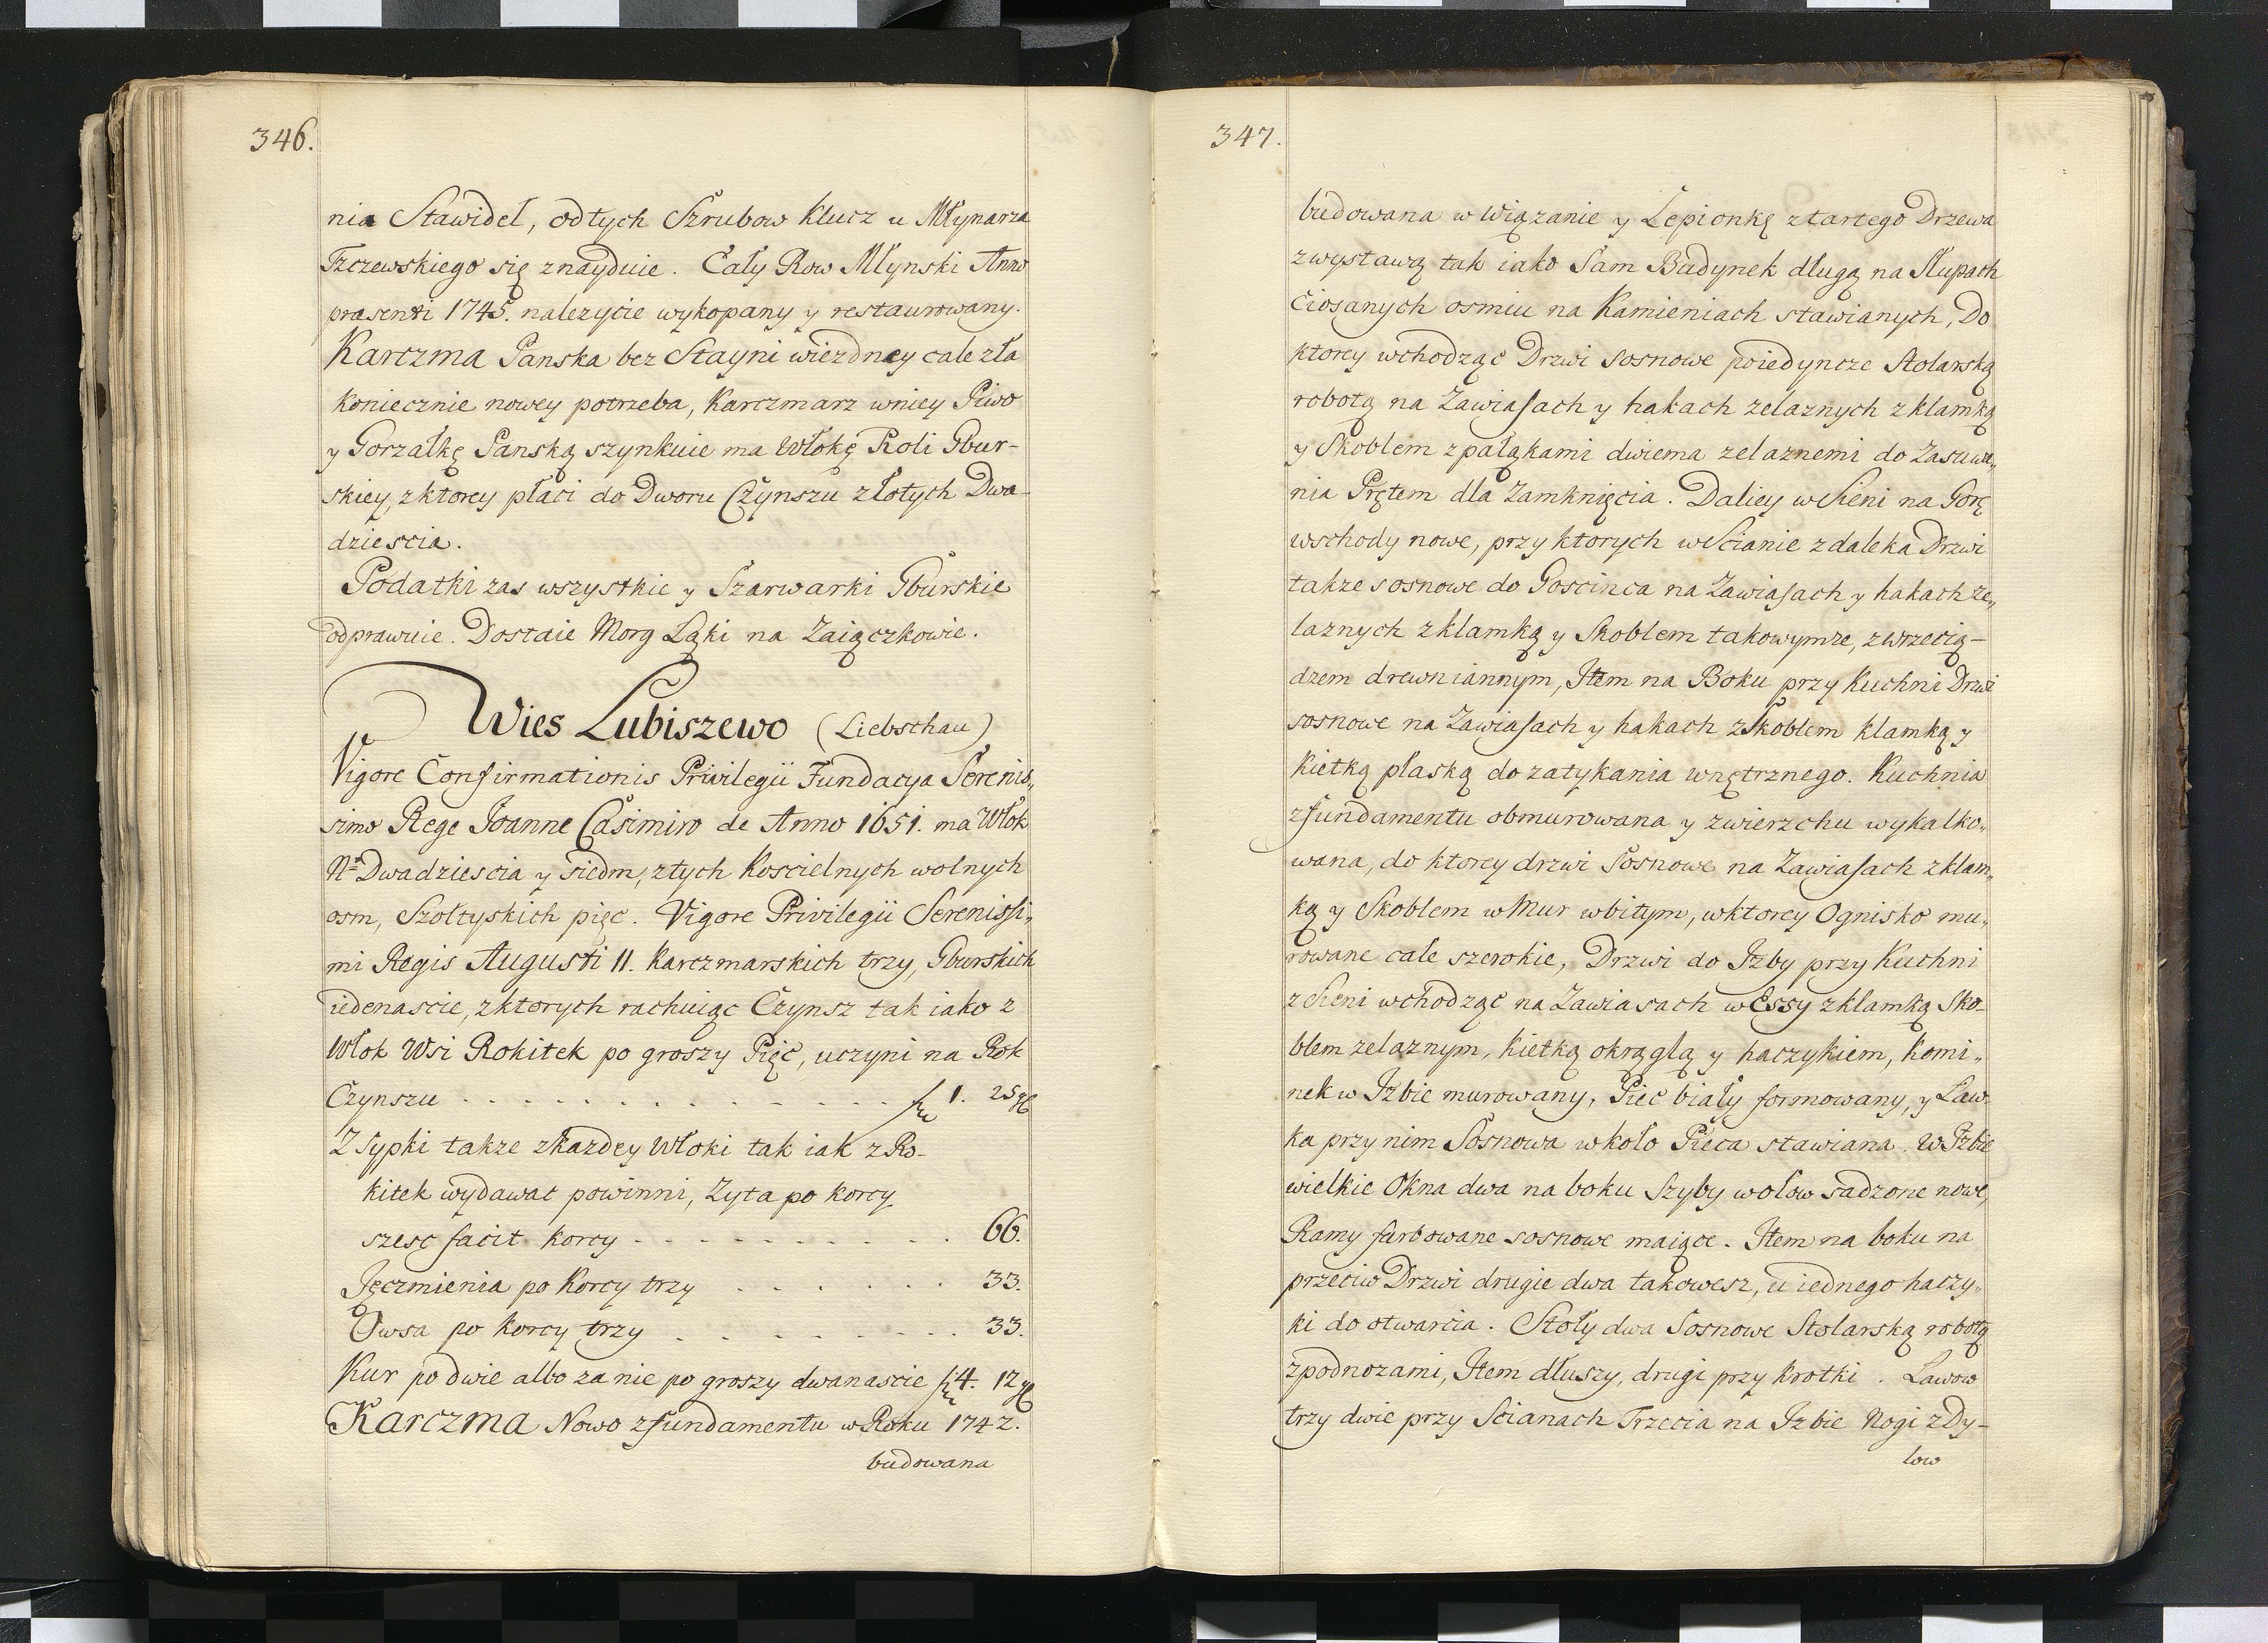 346.
nia Stawidel, od tych Szrubow klucz u Młynarza
Tczewskiego się znayduie. Cały Row Młynski Anno
præsenti 1745. nalezycie wykopany y restaurowany.
Karczma Panska bez Stayni wiezdney cale zła
koniecznie nowey potrzeba, Karczmarz wniey Piwo
y Gorzałkę Panską szynkuie ma Włokę Roli Gbur-
skiey, zktorey płaci do Dworu Czynszu złotych Dwa-
dziescia.
Podatki zas wszystkie y Szarwarki Gburskie
odprawuie. Dostaie Morg Łąki na Zaiączkowie.
Wies Lubiszewo (Liebschau)
Vigore Confirmationis Privilegii Fundacya Serenis„
simo Rege Joanne Casimiro de Anno 1651. ma Włok
Nº Dwadziescia y siedm, ztych Koscielnych wolnych
osm, Szołtyskich pięc. Vigore Privilegii Serenissi„
mi Regis Augusti II. Karczmarskich trzy, Gburskich
iedenascie, zktorych rachuiąc Czynsz tak iako z
Włok Wsi Rokitek po groszy Pięć, uczyni na Rok
Czynszu . . . . . . . . . . . . . . 1. 25 gl
Z Sypki takze zkazdey Włoki tak iak z Ro-
kitek wydawac powinni, Zyta po korcy
szesc facit korcy - - - - - - - - - - 66.
Jęczmienia po Korcy trzy . . . . . . 33.
Owsa po Korcy trzy . . . . . . . . . 33.
Kur po dwie albo za nie po groszy dwanascie 4. 12 gl
Karczma Nowo zfundamentu w Roku 1742.
budowana
347.
budowana w wiązanie y Lepionkę ztartego Drzewa
zwystawą tak iako Sam Budynek długą na Słupach
ciosanych osmiu na Kamieniach stawianych, Do
ktorey wchodząc Drzwi sosnowe poiedyncze Stolarską
robotą na Zawiasach y hakach zelaznych zklamką
y Skoblem zpałąkami dwiema zelaznemi do Zasuwa„
nia Prętem dla Zamknięcia. Daliey w Sieni na Gorę
wschody nowe, przy ktorych w Scianie zdaleka Drzwi
takze sosnowe do Goscinca na Zawiasach y hakach ze„
laznych zklamką y Skoblem takowymze, zwrzecią-
dzem drewniannym, Item na Boku przy Kuchni Drzwi
sosnowe na Zawiasach y hakach zSkoblem klamką y
kietką płaską do zatykania wnętrznego. Kuchnia
zfundamentu obmurowana y zwierzchu wykalko„
wana, do ktorey drzwi Sosnowe na Zawiasach zklam„
ką y Skoblem w Mur wbitym, wktorey Ognisko mu„
rowane cale szerokie, Drzwi do Izby przy Kuchni
z Sieni wchodząc na Zawiasach w Essy zklamką Sko-
blem zelaznym, kietką okrągłą y haczykiem, Komi„
nek w Izbie murowany, Piec biały formowany, y Ław-
ka przy nim Sosnowa w koło Pieca stawiana. W Izbie
wielkie Okna dwa na boku Szyby wołow sadzone nowe,
Ramy farbowane sosnowe maiące. Item na boku na
przeciw Drzwi drugie dwa takowesz, u iednego haczy„
ki do otwarcia. Stoły dwa Sosnowe Stolarską robotą
zpodnozami, Item dłuszy, drugi przy krotki. Ławow
trzy dwie przy Scianach Trzecia na Izbie Nogi z Dy-
low